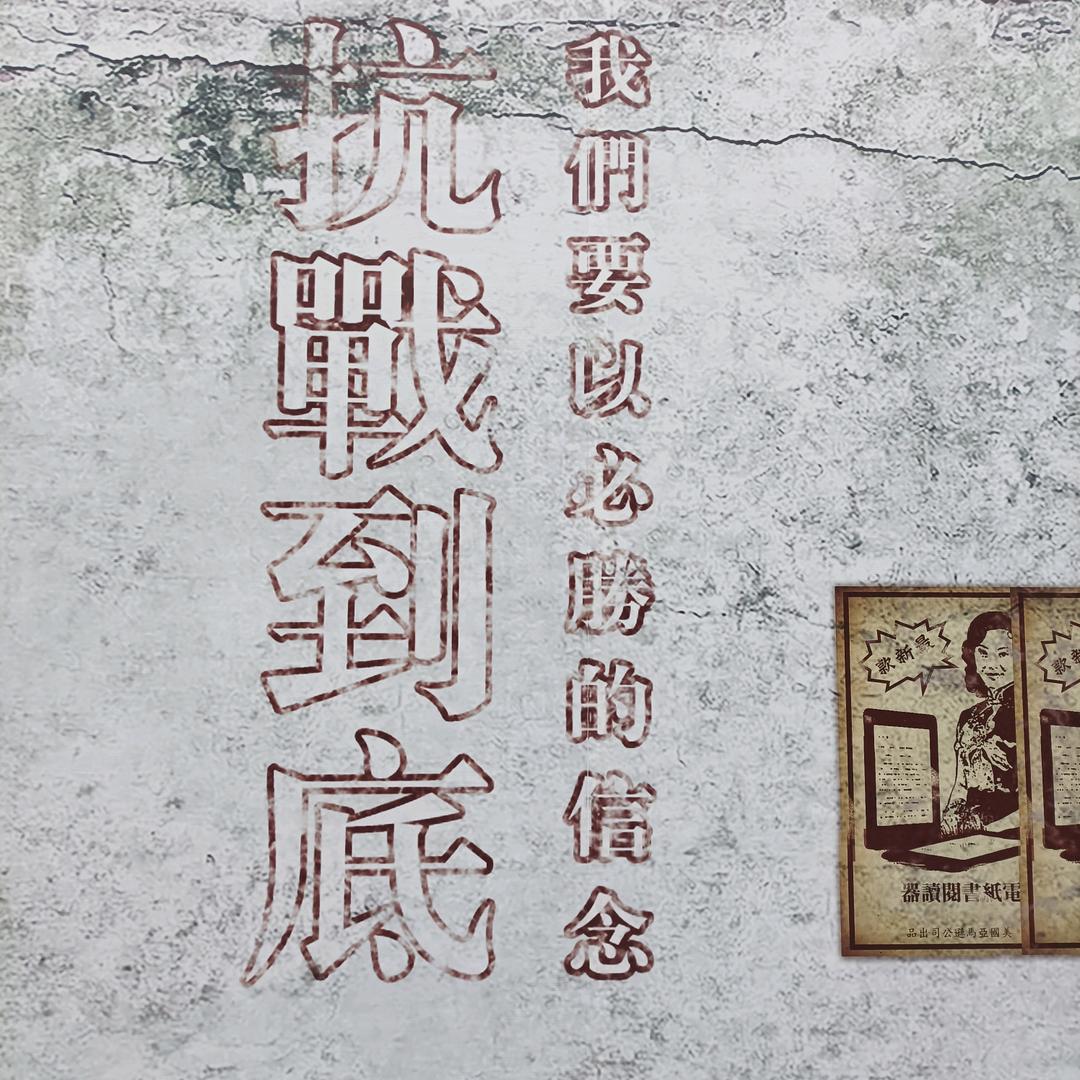 我們要以必勝的信念
抗戰到底
最新款
電紙書閱讀器
美國亞馬遜公司出品
最新款